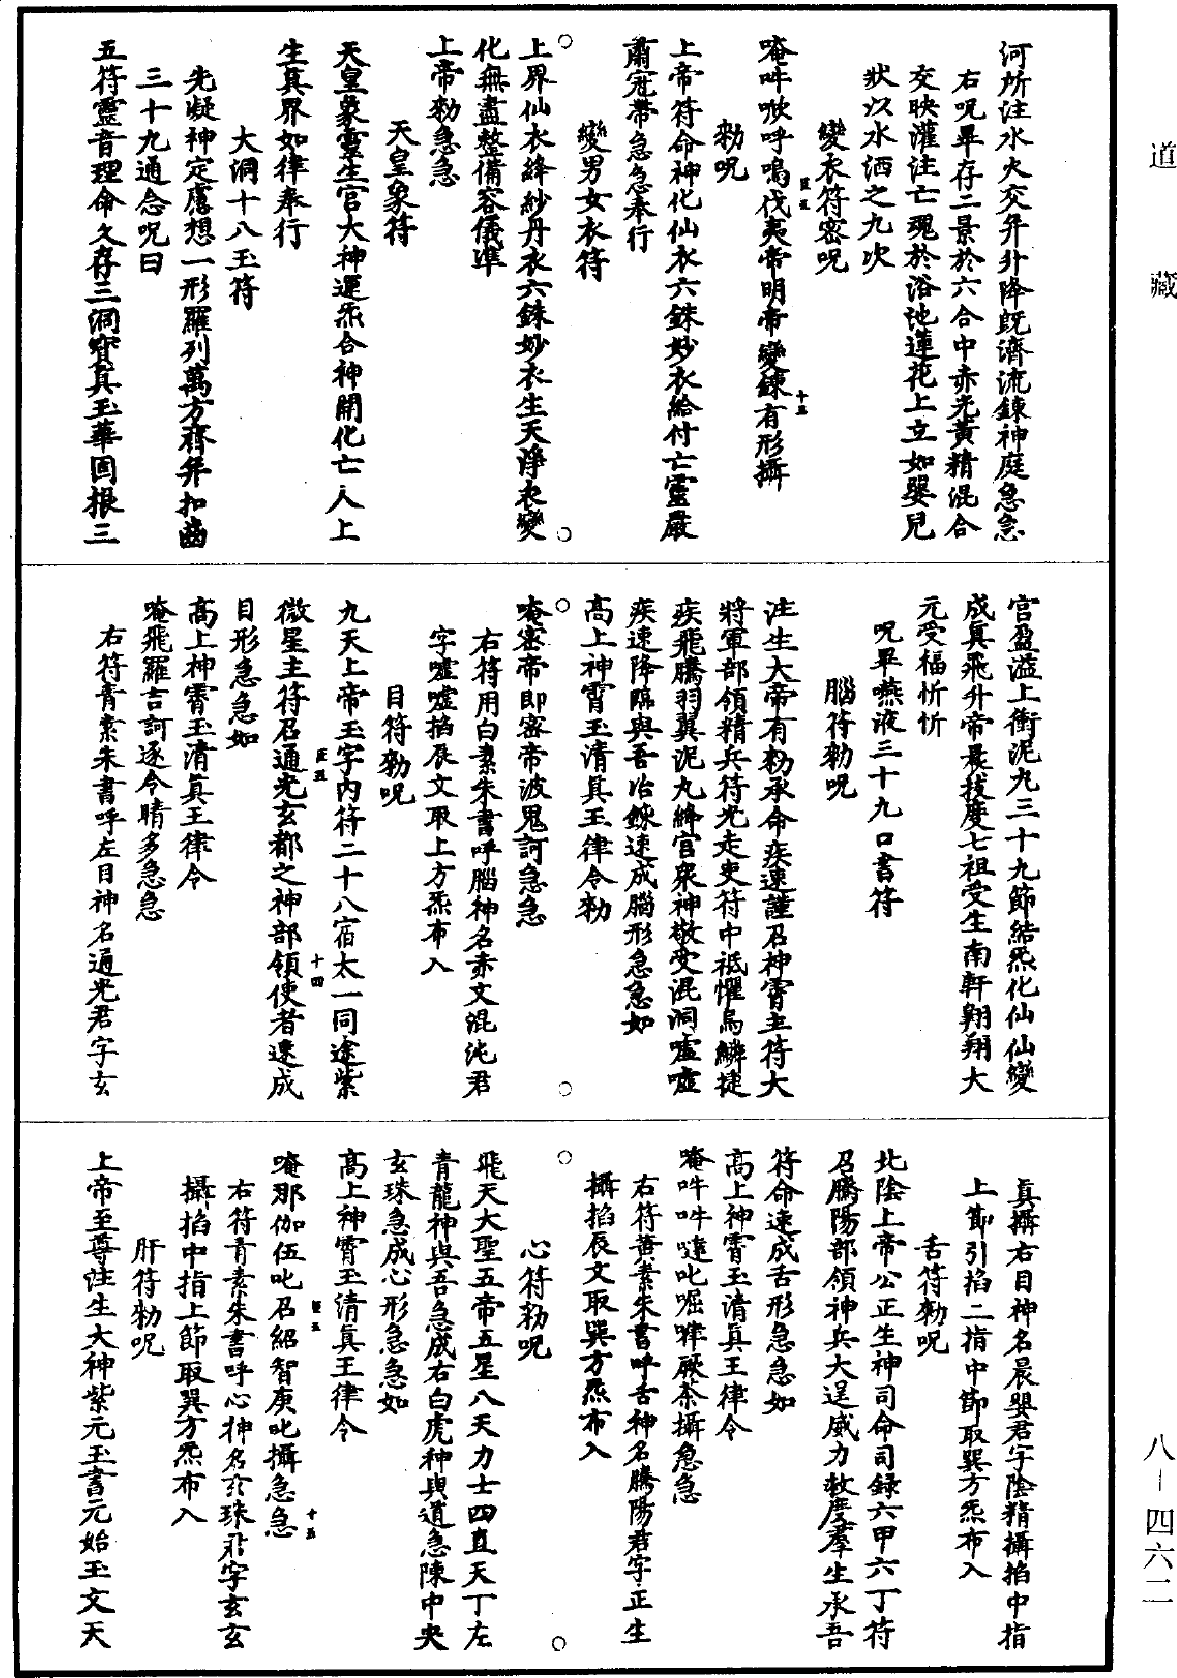 道藏
八－四六二
河所注水火交并升降既濟流鍊神庭急急
右呪畢存二景於六合中赤光黃精混合
交映灌注亡魂於浴池蓮花上立如嬰兒
狀以水洒之九吹
變衣符密呪
唵吽㗅呼嗚伐夷帝明帝變鍊有形攝
勑呪
上帝符命神化仙衣六銖妙衣給付亡靈嚴
肅冠帶急急奉行
變男女衣符
上界仙衣絳紗丹衣六銖妙衣生天淨衣變
化無盡整備容儀準
上帝勑急急
天皇象符
天皇象靈生官大神運炁合神開化亡人上
生真界如律奉行
大洞十八玉符
先凝神定慮想一形羅列萬方齊并扣齒
三十九通念呪曰
五符靈音理命久存三洞寶真玉華固根三
宮盈溢上衝泥丸三十九節結炁化仙仙變
成真飛升帝晨拔度七祖受生南軒翱翔大
元受福忻忻
呪畢嚥液三十九口書符
腦符勑呪
注生大帝有勑承命疾速謹召神霄主符大
將軍部領精兵符光走吏符中祇懼烏鱗捷
疾飛騰羽翼泥丸絳宮衆神敬受混洞嘘嘘
疾速降臨與吾冶鍊速成腦形急急如
高上神霄玉清真王律令勑
唵密帝即密帝波鬼訶急急
右符用白素朱書呼腦神名赤文混沌君
字嘘嘘掐辰文取上方炁布入
目符勑呪
九天上帝玉字內符二十八宿太一同途紫
微星主符召通光玄都之神部領使者速成
目形急急如
高上神霄玉清真王律令
唵飛羅吉訶逐令睛多急急
右符青素朱書呼左目神名通光君字玄
真攝右目神名晨嬰君字陰精攝掐中指
上節引掐二指中節取巽方炁布入
舌符勑呪
北陰上帝公正生神司命司錄六甲六丁符
召騰陽部領神兵大逞威力救度羣生承吾
符命速成舌形急急如
高上神霄玉清真王律令
唵吽吽噠叱㖆嘩厥茶攝急急
右符黃素朱書呼舌神名騰陽君字正生
攝掐辰文取巽方炁布入
心符勑呪
飛天大聖五帝五星八天力士四直天丁左
青龍神與吾急成右白虎神與道急陳中央
玄珠急成心形急急如
高上神霄玉清真王律令
唵那伽伍叱召紹智庚叱攝急急
右符青素朱書呼心神名玄珠君字玄玄
攝掐中指上節取巽方炁布入
肝符勑呪
上帝至尊注生大神紫元玉書元始玉文天